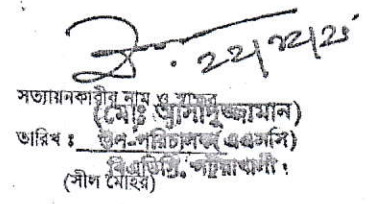 ২২/১২/২১
সত্যায়নকারীর নাম ও স্বাক্ষর
(মোঃ আসাদুজ্জামান)
তারিখ : উপ-পরিচালক (এএসসি)
বিএডিসি, পটুয়াখালী।
(সীল মোহর)